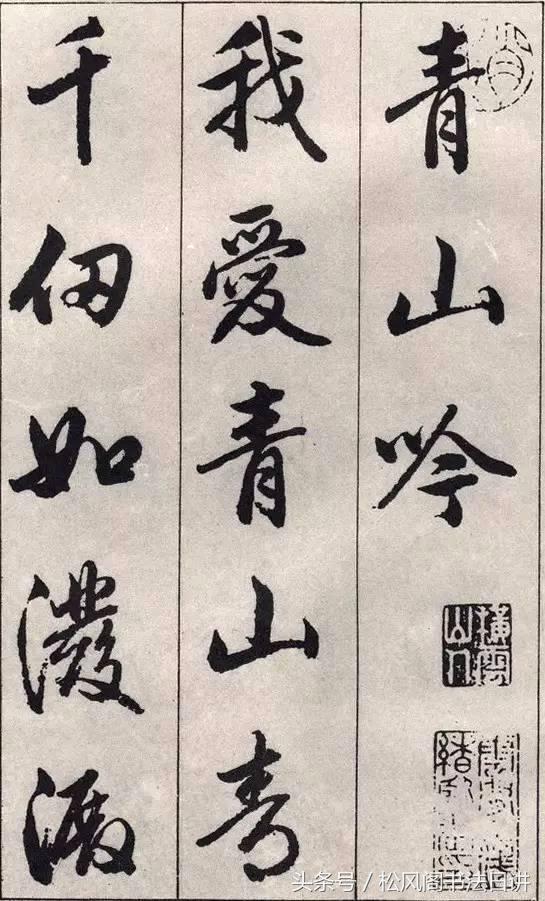 青山吟
我愛青山青
千仞如潑
橫雲山人
头条号 / 松风阁书法日讲